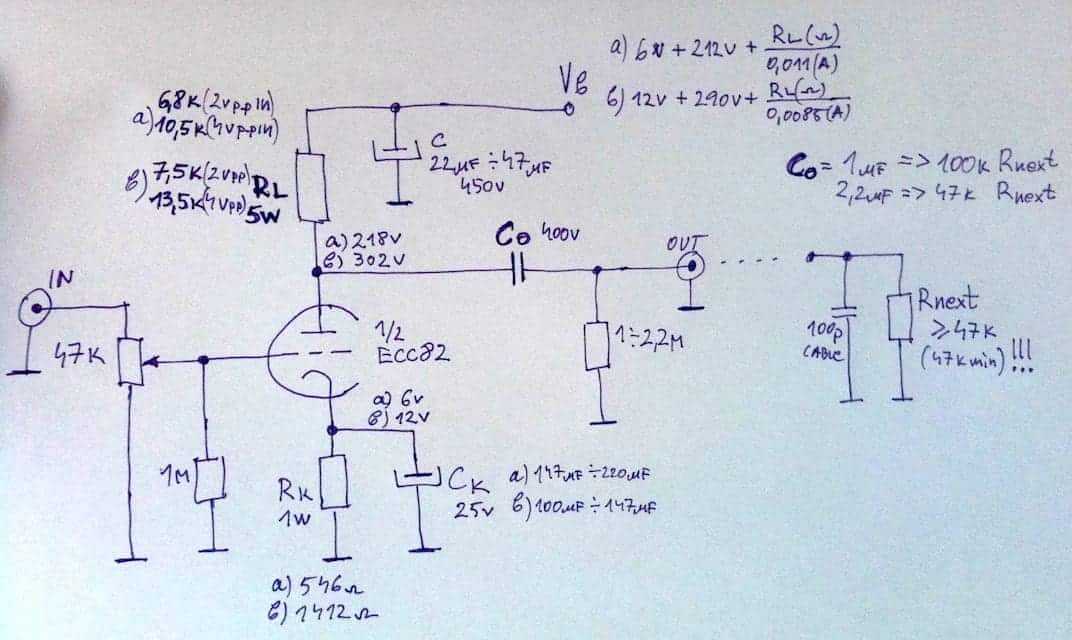 a) 6V + 212V + RL(Ω)
0,011(A)
б) 12V + 290V + RL(Ω)
0,0085(A)
VB
6,8K(2Vp-p IN)
a) 10,5K(4Vp-pIN)
б) 7,5K(2Vpp)
13,5K(4Vpp)
RL
5W
C
22μF ÷ 47μF
450V
Co = 1μF => 100K Rnext
2,2μF => 47K Rnext
a) 218V
б) 302V
Co 400V
OUT
IN
47K
1/2
ECC82
1÷2,2M
100p
CABLE
Rnext
≥47K
(47Kmin) !!!
a) 6V
б) 12V
1M
RK
1W
CK
25V
a) 147μF ÷ 220μF
б) 100μF ÷ 147μF
a) 546Ω
б) 1412Ω